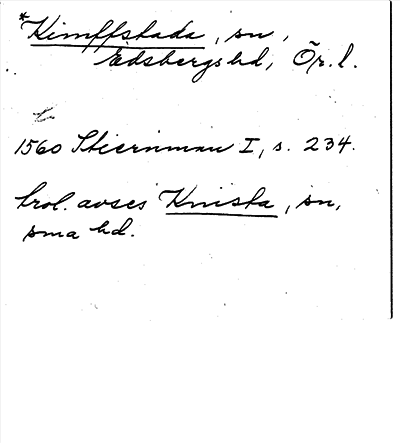 *Kimffstada, sn,
Edsbergs hd, Ör. l.
1560 Stiernman I, s. 234.
trol. avses Knista, sn,
sma hd.